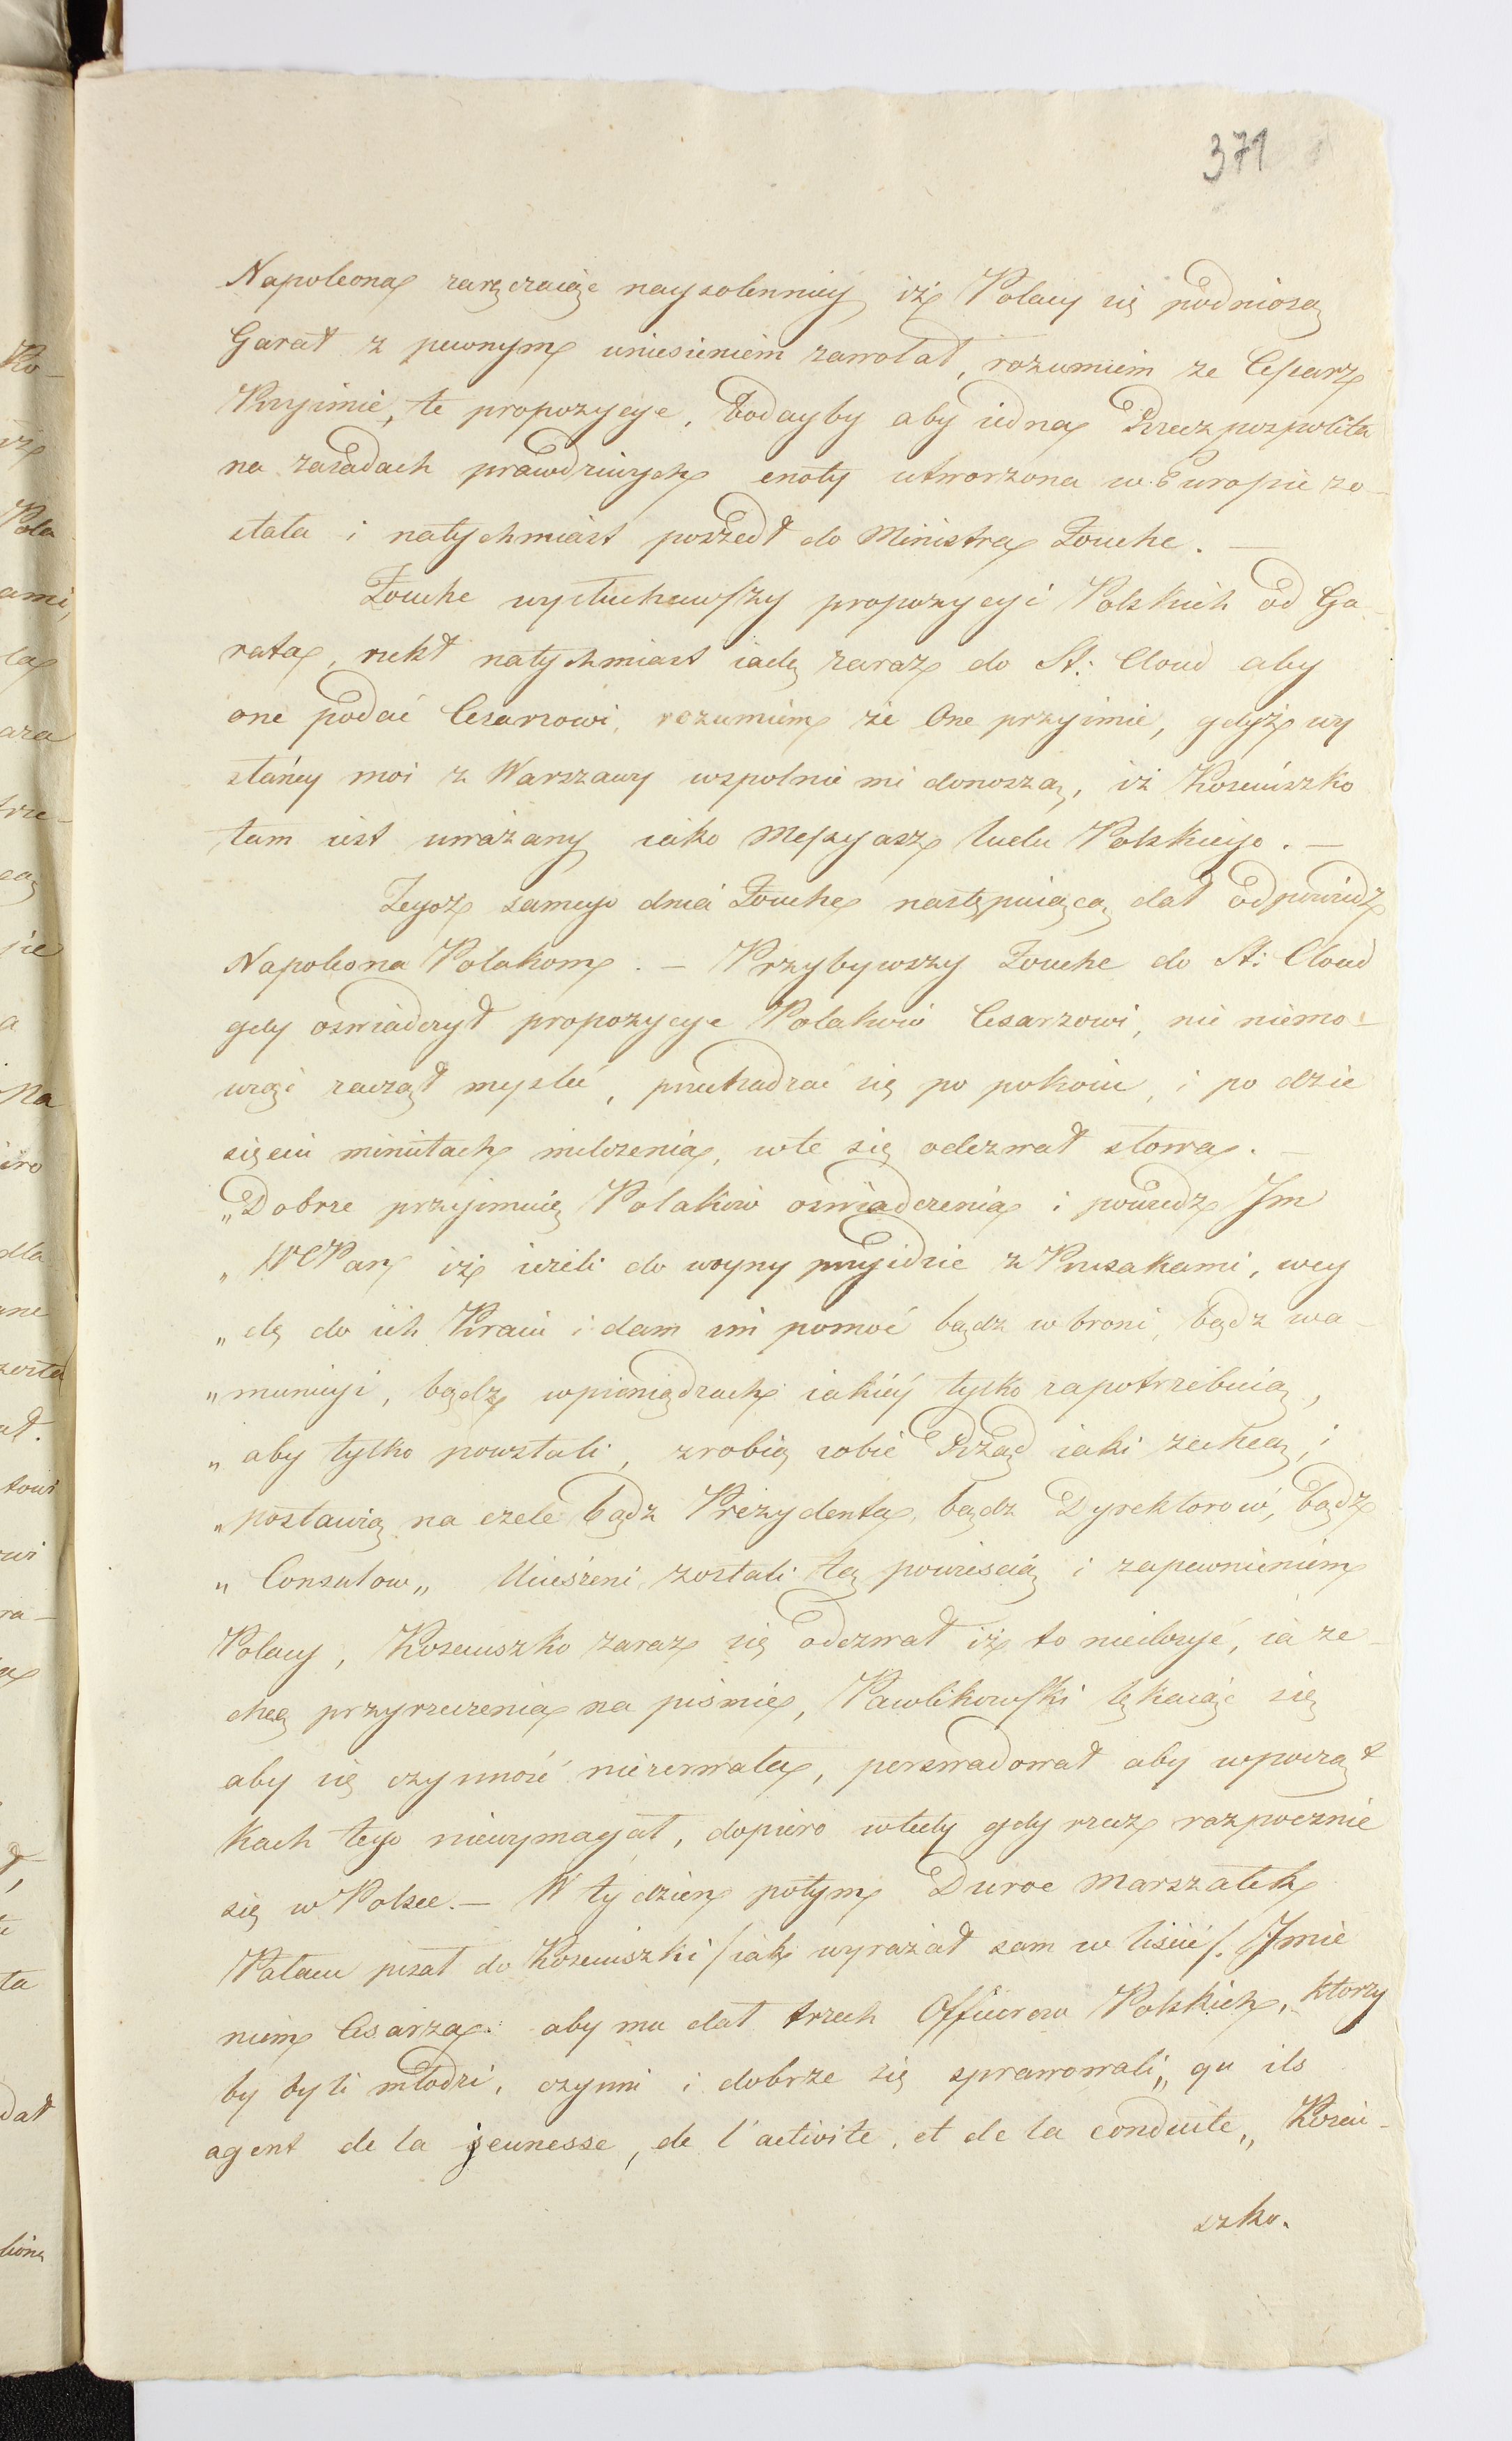 371
Napoleona zaręczaiąc naysolenniey iż Polacy się podniosą
Garat z pewnym uniesieniem zawołał, rozumiem ze Cesarz
Przyimie, te propozycye, bodayby aby iedna Rzeczpospolita
na zasadach prawdziwych cnoty utworzona w Europie zo-
stała i natychmiast poszedł do Ministra Fouche. —
Fouche wysłuchawszy propozycyi Polskich od Ga-
rata, rzekł natychmiast iadę zaraz do St: Cloud aby
one podać Cesarzowi, rozumiem że One przyimie, gdyż wy
słańcy moi z Warszawy wspolnie mi donoszą, iż Kosciuszko
tam iest uważany iako Messyasz ludu Polskiego. —
Tegoż samego dnia Fouche następuiącą dał odpowiedz
Napoleona Polakom. — Przybywszy Fouche do St: Cloud
gdy oswiadczył propozycye Polakow Cesarzowi, nic niemo-
wiąc zaczął mysleć, przechadzać się po pokoiu, i po dzie
sięciu minutach milczenia, w te się odezwał słowa. —
„Dobrze przyimuię Polaków oswiadczenia i powiedz Im
„WCPan iż ieżeli do woyny przyidzie z Prusakami, wey
„dę do ich Kraiu i dam im pomoc bądz w broni, bądz wa-
„municyi, bądz w pieniądzach iakiey tylko zapotrzebuią,
„aby tylko powstali, zrobią sobie Rząd iaki zechcą, i
„postawią na czele bądz Prezydenta, bądz Dyrektorow, bądz
„Consulow„ Ucieszeni zostali tą powiescią i zapewnieniem
Polacy, Kosciuszko zaraz się odezwał iż to niedosyć, ia ze
chcę przyrzeczenia na pismie, Pawlikowski lękaiąc się
aby się czynność niezerwała, perswadował aby w począt
kach tego niewymagał, dopiero wtedy gdy rzecz rozpocznie
się w Polsce. — W tydzien potym Duroc Marszałek
Pałacu pisał do Kosciuszki /iak wyrażał sam w liscie/. Imie
niem Cesarza. aby mu dał trzech Officerow Polskich, ktorzy
by byli młodzi, czynni i dobrze się sprawowali„ qu ils
agent de la jeunesse, de l'activite, et de la conduite„ Kosciu-
szko.